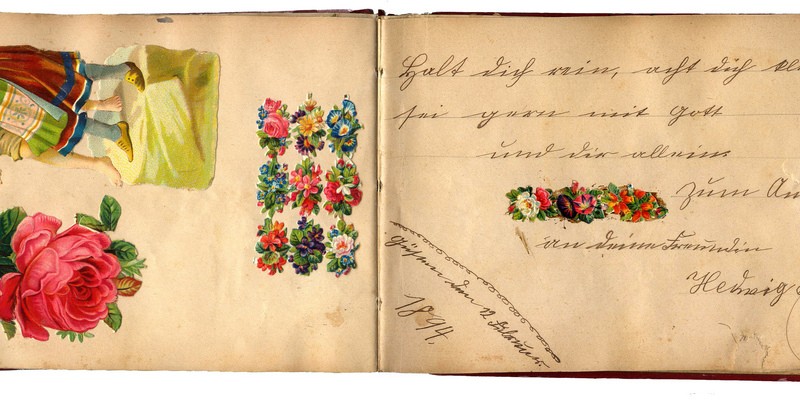 Halt dich rein, acht dich kl
sei gern mit Gott
und dir allein.
Zum An
an deine Freundin
Hedwig
den 12 Februar
1894.